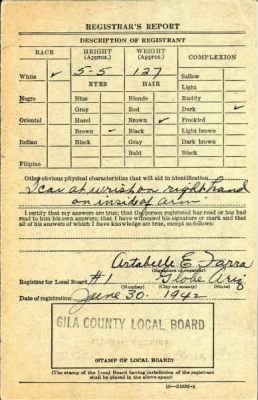 REGISTRAR'S REPORT
DESCRIPTION OF REGISTRANT
RACE HEIGHT (Approx.) WEIGHT (Approx.) COMPLEXION
White ✓ 5-5 127 Sallow
EYES HAIR Light
Negro Blue Blonde Ruddy
Gray Red Dark ✓
Oriental Hazel Brown ✓ Freckled
Brown ✓ Black Light brown
Indian Black Gray Dark brown
Bald Black
Filipino
Other obvious physical characteristics that will aid in identification
Scar at wrist on right hand
on inside of arm
I certify that my answers are true; that the person registered has read or has had
read to him his own answers; that I have witnessed his signature or mark and that
all of his answers of which I have knowledge are true, except as follows:
E.
(Signature of registrar)
Registrar for Local Board #1 Globe Ariz
(Number) (City or county) (State)
Date of registration June 30 - 1942
GILA COUNTY LOCAL BOARD
(STAMP OF LOCAL BOARD)
(The stamp of the Local Board having jurisdiction of the registrant
shall be placed in the above space)